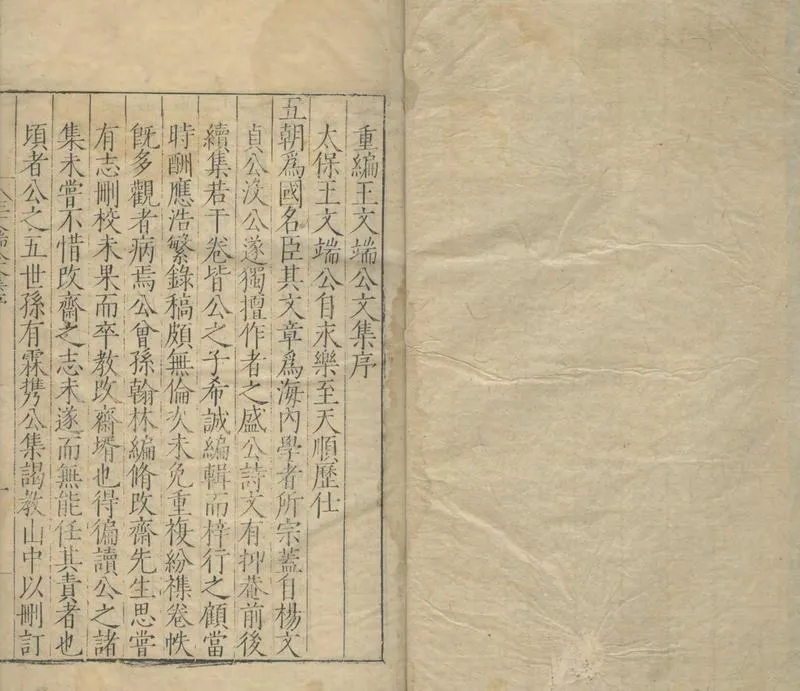 重編王文端公文集序
太保王文端公自永樂至天順歷仕
五朝爲國名臣其文章爲海內學者所宗蓋自楊文
貞公沒公遂獨擅作者之盛公詩文有抑菴前後
續集若干卷皆公之子希誠編輯而梓行之顧當
時酬應浩繁錄稿頗無倫次未免重複紛襍卷帙
旣多觀者病焉公曾孫翰林編脩改齋先生思嘗
有志刪校未果而卒教改齋壻也得徧讀公之諸
集未嘗不惜改齋之志未遂而無能任其責者也
頃者公之五世孫有霖携公集謁教山中以刪訂